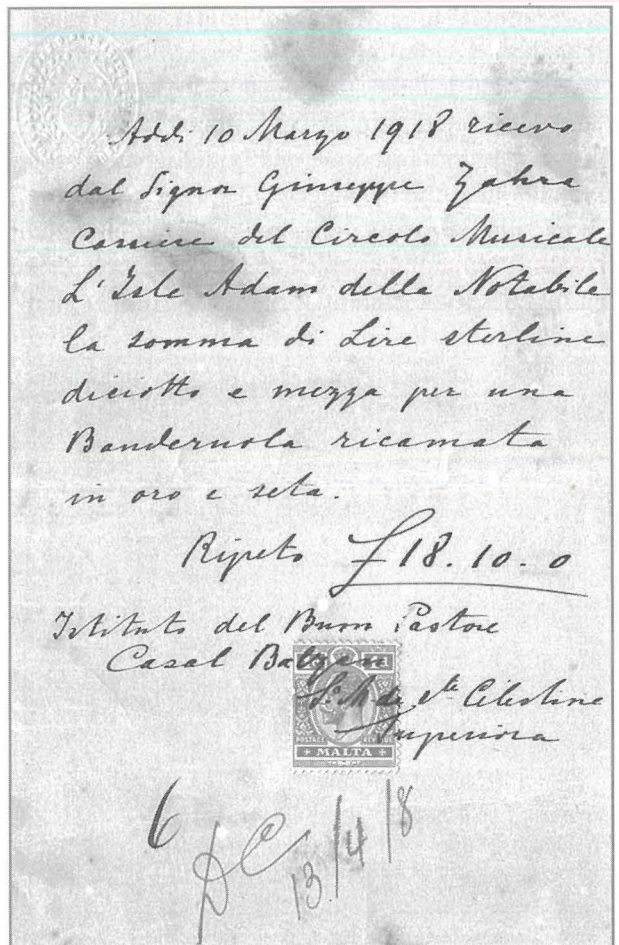 Addi 10 Marzo 1918 ricevo
dal Signor Giuseppe Zahra
Cassiere del Circolo Musicale
L'Isle Adam della Notabile
la somma di Lire sterline
diciotto e mezza per una
Banderuola ricamata
in oro e seta.
Ripeto £18.10.0
Istituto del Buon Pastore
Casal Balzan
Sr. M de Ste Celestine
Superiora
POSTAGE
MALTA
6
DC
13/4/8